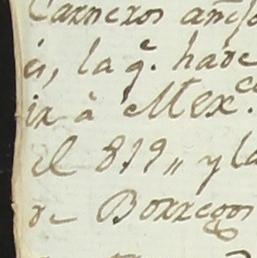 Carneros
és, la qᵉ. have
ir à Mexᶜᵒ.
el 819,, y la
de Borregos